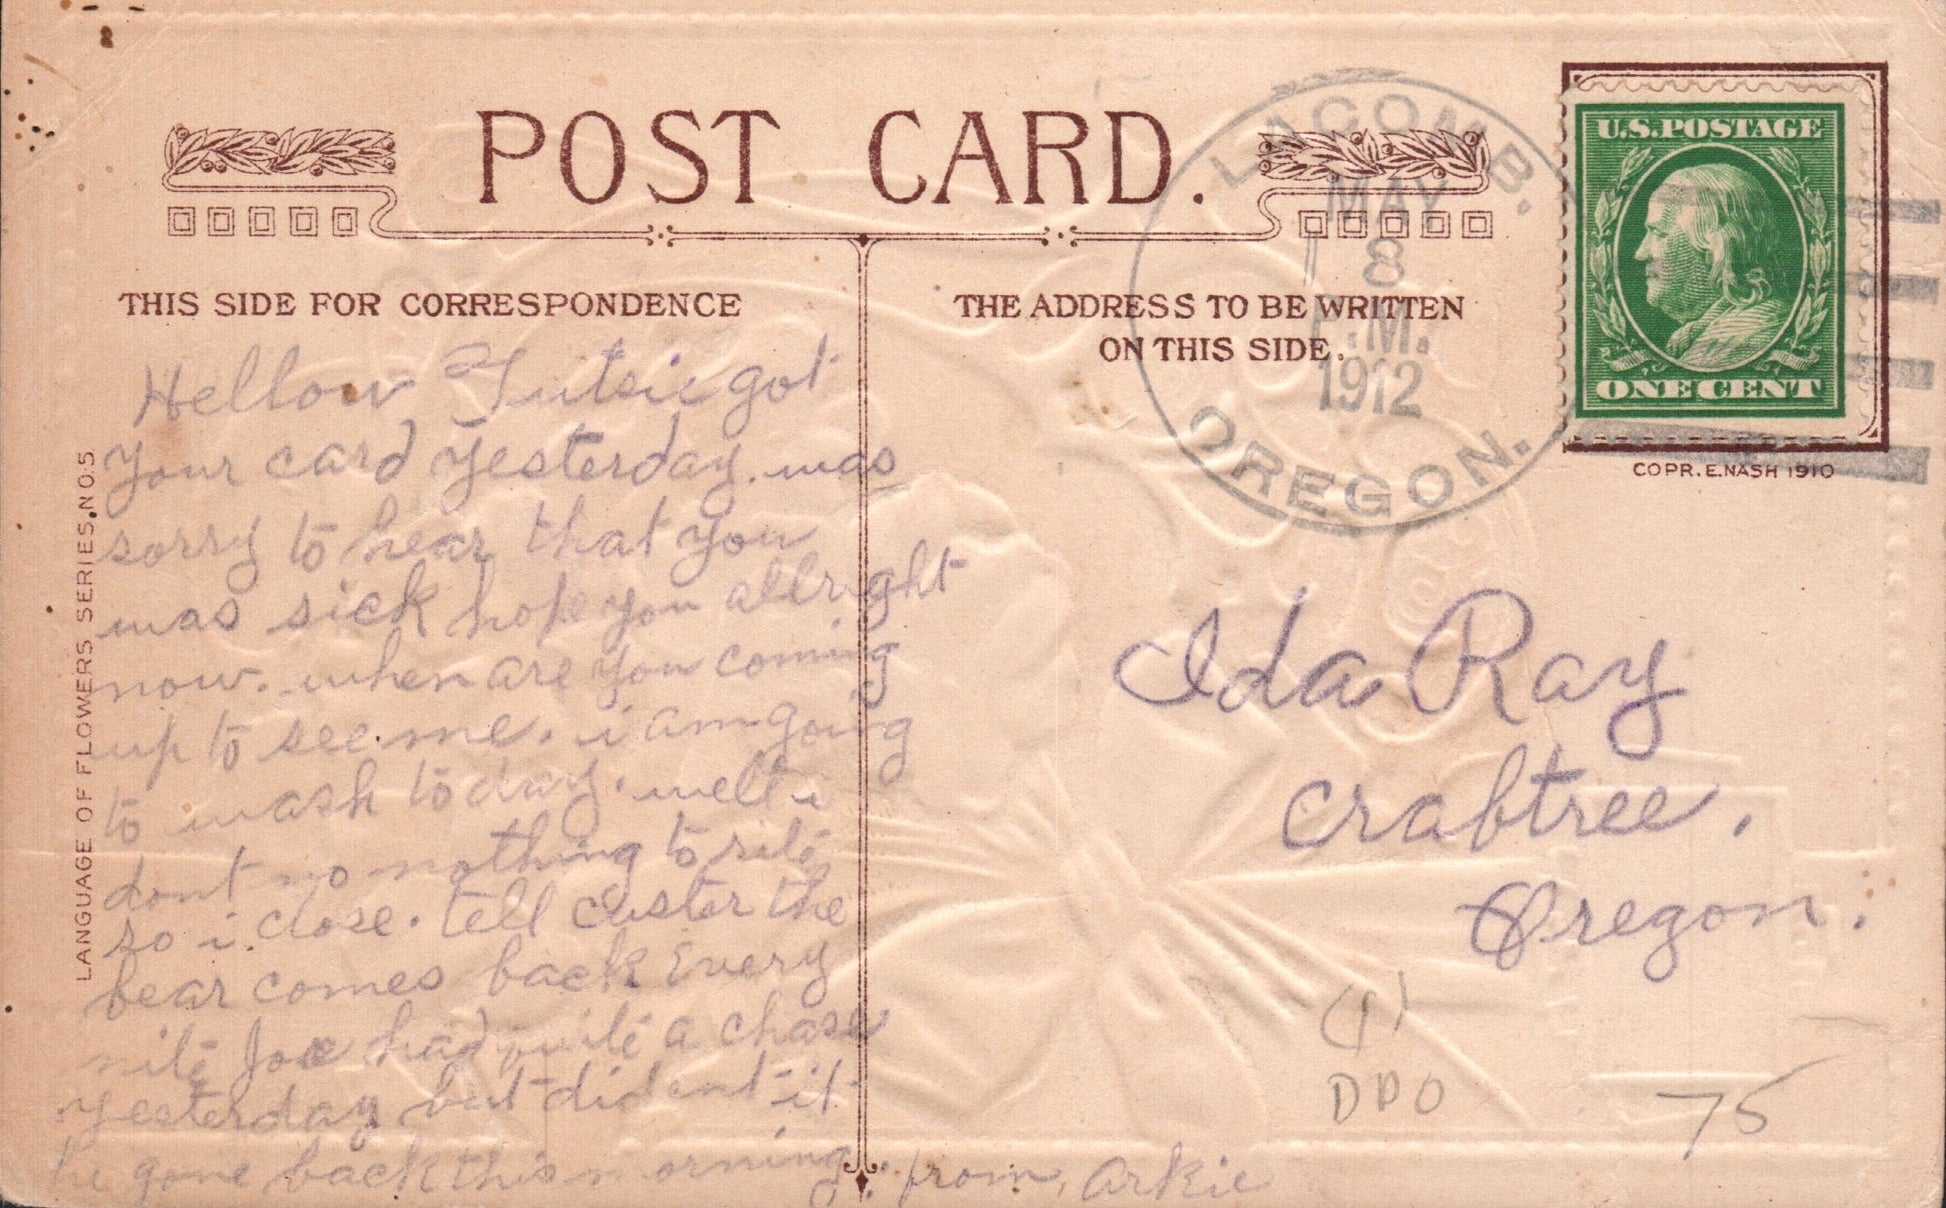 POST CARD.
THIS SIDE FOR CORRESPONDENCE
THE ADDRESS TO BE WRITTEN
ON THIS SIDE.
LACOMB.
MAY
8
P.M.
1912
OREGON.
U.S.POSTAGE
ONE CENT
COPR. E. NASH 1910
LANGUAGE OF FLOWERS SERIES, NO. 5
Hellow Tutsie got
your card yesterday. was
sorry to hear that you
was sick hope you allright
now. when are you coming
up to see me. i am going
to wash to day. well i
dont no nothing to rite
so i close. tell custer the
bear comes back Every
nite Joe had quite a chase
yesterday but dident it
he gone back this morning. from, Arkie
Ida Ray
Crabtree.
Oregon.
DPO
75